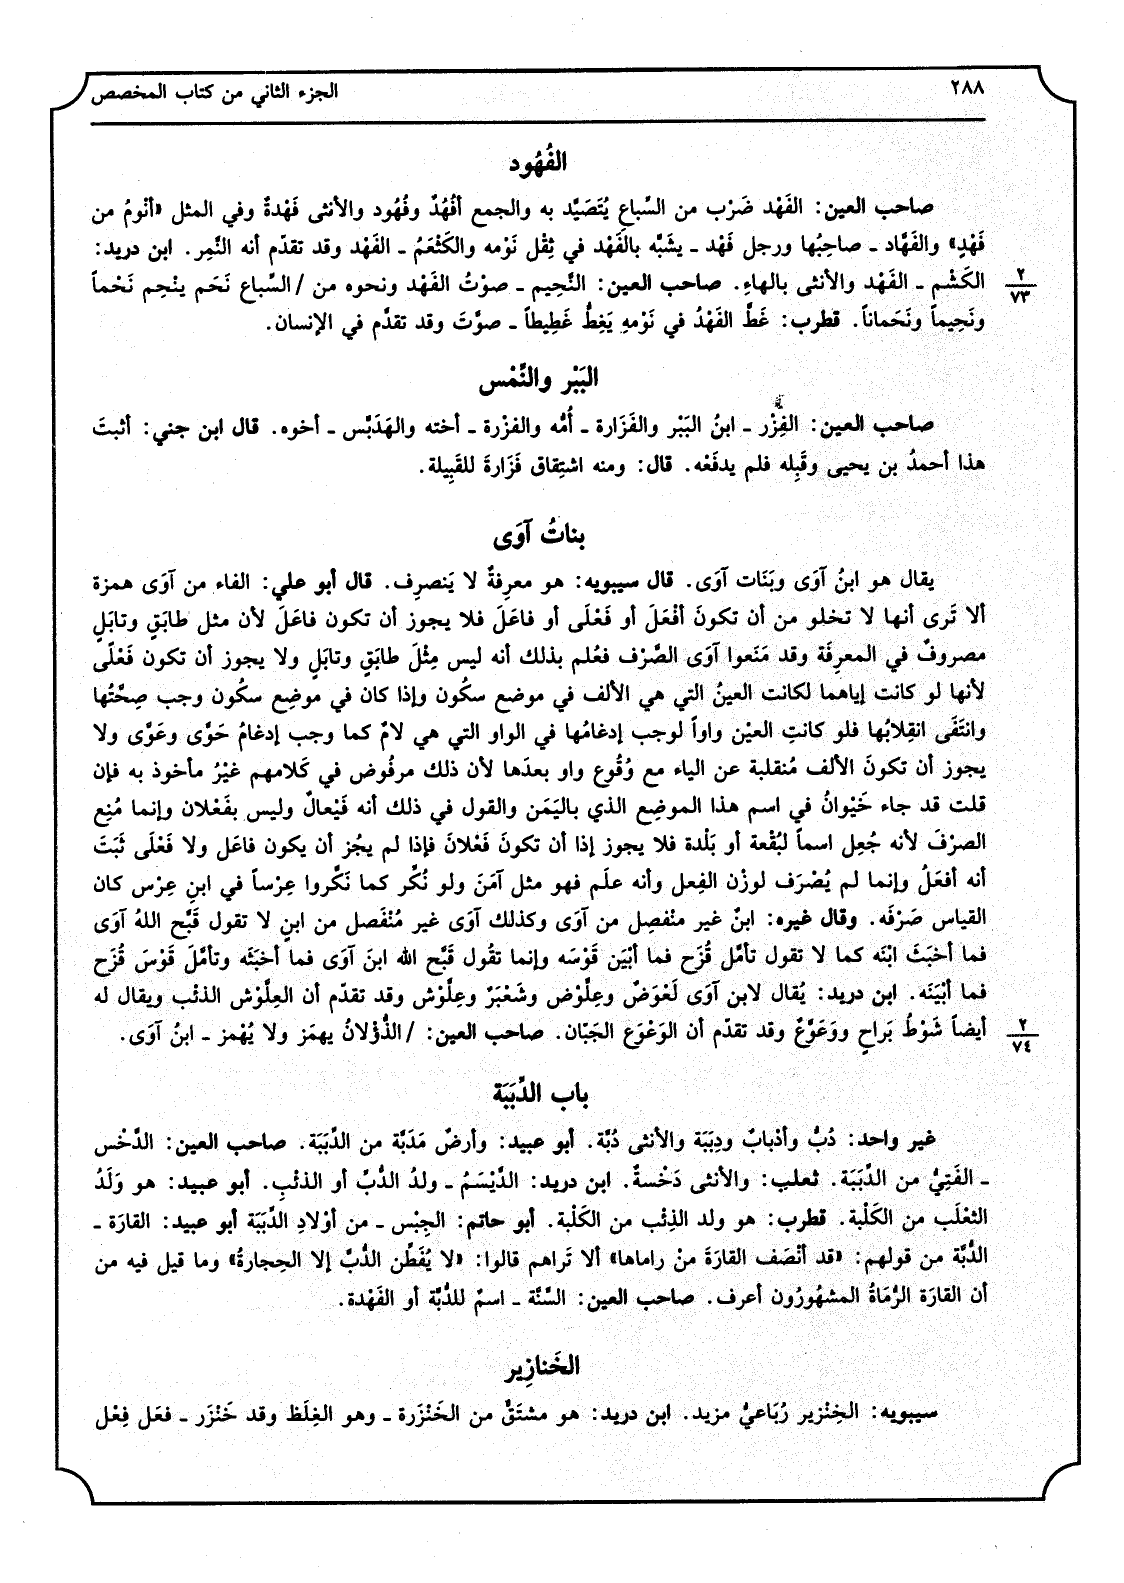 ٢٨٨
الجزء الثاني من كتاب المخصص
الفُهُود
صاحب العين: الفَهْد ضَرْب من السِّباعِ يُتَصَيَّد به والجمع أفْهُدٌ وفُهُود والأنثى فَهْدةٌ وفي المثل «أنْومُ من
فَهْدٍ» والفَهَّاد ـ صاحِبُها ورجل فَهْد ـ يشَبَّه بالفَهْد في ثِقْل نَوْمه والكَثْعَمُ ـ الفَهْد وقد تقدّم أنه النَّمِر. ابن دريد:
الكَشْم ـ الفَهْد والأنثى بالهاءِ. صاحب العين: النَّحِيم ـ صوْتُ الفَهْد ونحوه من / السِّباع نَحَم ينْحِم نَحْماً
٢
٧٣
ونَحِيماً ونَحَماناً. قطرب: غَطَّ الفَهْدُ في نَوْمهِ يَغِطُّ غَطِيطاً ـ صوَّتَ وقد تقدَّم في الإنسان.
البَبْر والنِّمْس
صاحب العين: الفِزْر ـ ابنُ البَبْر والفَزَارة ـ أُمُّه والفزْرة ـ أخته والهَدَبَّس ـ أخوه. قال ابن جني: أثبتَ
هذا أحمدُ بن يحيى وقَبِله فلم يدفَعْه. قال: ومنه اشتِقاق فَزَارةَ للقَبِيلة.
بناتُ آوَى
يقال هو ابنُ آوَى وبَنَات آوَى. قال سيبويه: هو معرِفةٌ لا يَنصرِف. قال أبو علي: الفاء من آوَى همزة
ألا تَرى أنها لا تخلو من أن تكونَ أفْعَلَ أو فَعْلَى أو فاعَلَ فلا يجوز أن تكون فاعَلَ لأن مثل طابَقٍ وتابَلٍ
مصروفٌ في المعرِفَة وقد مَنَعوا آوَى الصَّرْف فعُلم بذلك أنه ليس مِثْلَ طابَقٍ وتابَلٍ ولا يجوز أن تكون فَعْلَى
لأنها لو كانت إياهما لكانت العينُ التي هي الألف في موضع سكُون وإذا كان في موضِع سكُون وجب صِحَّتُها
وانتَفَى انقِلابُها فلو كانتِ العيْن واواً لوجب إدغامُها في الواو التي هي لامٌ كما وجب إدغامُ حَوَّى وعَوَّى ولا
يجوز أن تكونَ الألف مُنقلبة عن الياء مع وُقُوع واو بعدَها لأن ذلك مرفُوض في كَلامهم غيْرُ مأخوذ به فإن
قلت قد جاء خَيْوانُ في اسم هذا الموضِع الذي باليَمَن والقول في ذلك أنه فَيْعالٌ وليس بفَعْلان وإنما مُنِع
الصرْفَ لأنه جُعِل اسماً لبُقْعة أو بَلْدة فلا يجوز إذا أن تكونَ فَعْلانَ فإذا لم يجُز أن يكون فاعَل ولا فَعْلَى ثَبَتَ
أنه أفعَلُ وإنما لم يُصْرَف لوزْن الفِعل وأنه علَم فهو مثل آمَنَ ولو نُكِّر كما نَكَّروا عِرْساً في ابنِ عِرْس كان
القياس صَرْفَه. وقال غيره: ابنٌ غير منْفصِل من آوَى وكذلك آوَى غير مُنْفَصل من ابنٍ لا تقول قَبَّح اللهُ آوَى
فما أخبَثَ ابْنَه كما لا تقول تأمَّل قُزَح فما أبْيَن قَوْسَه وإنما تقُول قَبَّح الله ابنَ آوَى فما أخبَثَه وتأمَّلَ قَوْسَ قُزَح
فما أبْيَنَه. ابن دريد: يُقال لابن آوَى لَعْوَضٌ وعِلَّوْض وشَغْبَرٌ وعِلَّوْش وقد تقدّم أن العِلَّوْش الذئب ويقال له
أيضاً شَوْطُ بَراحٍ ووَعَوَّعٌ وقد تقدّم أن الوَعْوَع الجَبَّان. صاحب العين: / الذُّؤْلانُ يهمَز ولا يُهْمز ـ ابنُ آوَى.
٢
٧٤
باب الدِّبَبَة
غير واحد: دُبٌّ وأدْبابٌ ودِبَبَة والأنثى دُبَّة. أبو عبيد: وأرضٌ مَدَبَّة من الدِّبَبَة. صاحب العين: الدَّخْس
ـ الفَتِيُّ من الدِّبَبَة. ثعلب: والأنثى دَخْسةٌ. ابن دريد: الدَّيْسَمُ ـ ولدُ الدُّبِّ أو الذئبِ. أبو عبيد: هو وَلَدُ
الثعْلَب من الكَلْبة. قطرب: هو ولد الذِئْب من الكَلْبة. أبو حاتم: الجِبْس ـ من أوْلادِ الدِّبَبَة أبو عبيد: القارَة ـ
الدُّبَّة من قولهم: «قد أنْصَف القارَةَ منْ راماها» ألا تَراهم قالوا: «لا يُفَطِّن الدُّبَّ إلا الحِجارةُ» وما قيل فيه من
أن القارَة الرُّمَاةُ المشهُورُون أعرف. صاحب العين: السَّنَّة ـ اسمٌ للدُّبَّة أو الفَهْدة.
الخَنازِير
سيبويه: الخِنْزير رُبَاعيٌّ مزيد. ابن دريد: هو مشتَقٌّ من الخَنْزَرة ـ وهو الغِلَظ وقد خَنْزَر ـ فعَل فِعْل